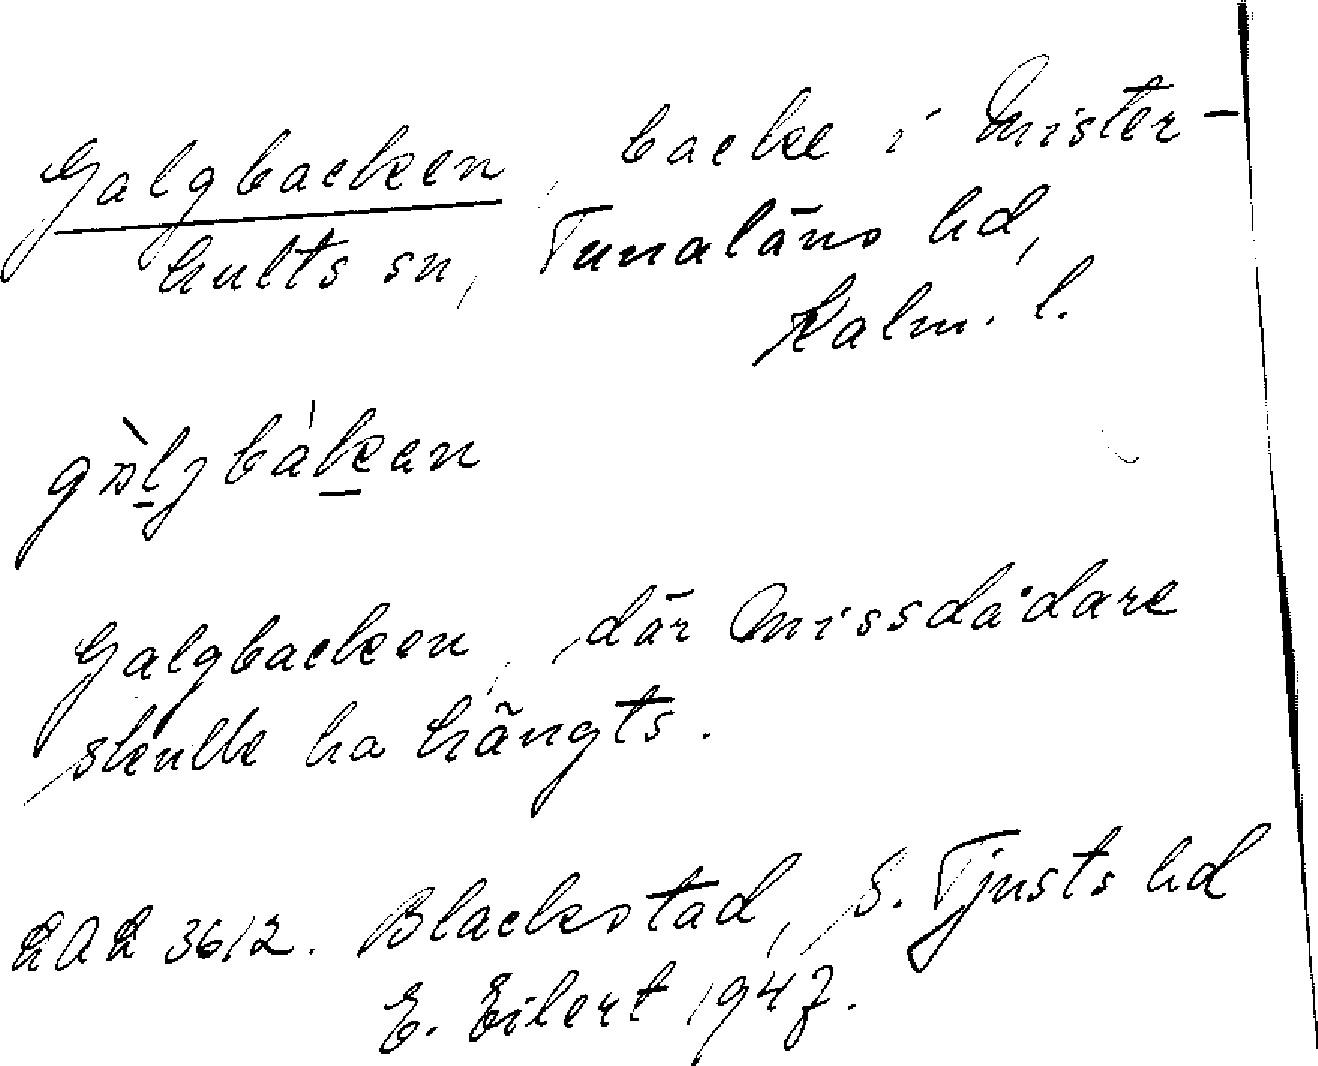 Galgbacken, backe i Mister-
hults sn, Tunaläns hd,
Kalm. l.
Galgbacken, där missdådare
skulle ha hängts.
3612. Blackstad, S. Tjusts hd
E. Eilert 1947.